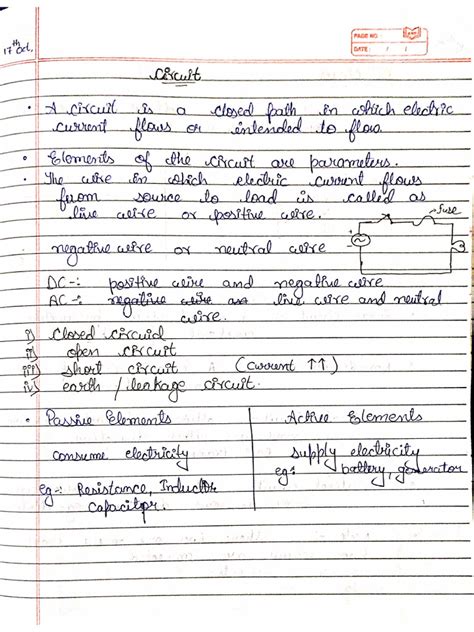 PAGE NO.
DATE: / /
17th Oct,
Circuit
• A circuit is a closed path in which electric
current flows or intended to flow.
• Elements of the circuit are parameters.
• The wire in which electric current flows
from source to load is called as
live wire or positive wire.
fuse
negative wire or neutral wire
DC-: positive wire and negative wire
AC-: negative wire as live wire and neutral
wire.
i) Closed circuid
ii) open circuit
iii) short circuit (current ↑↑)
iv) earth / leakage circuit.
• Passive Elements
consume electricity
eg-: Resistance, Inductor
capacitor.
Active Elements
supply electricity
eg: battery, generator